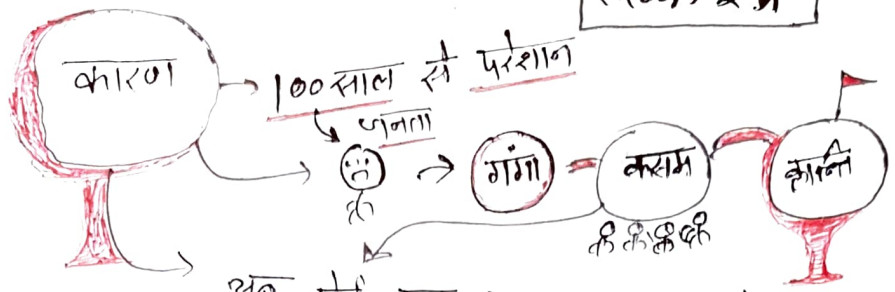 कारण
100 साल से परेशान
जनता
गंगा
कसम
क्रान्ति